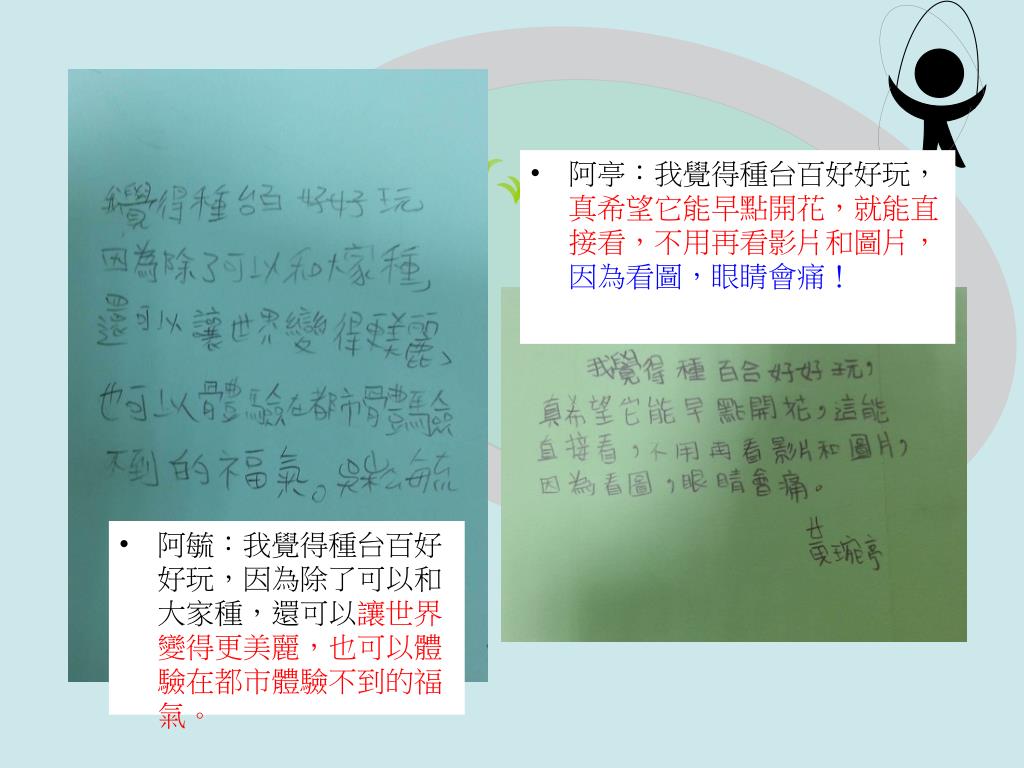 我覺得種台百好好玩
因為除了可以和大家種,
還可以讓世界變得更美麗、
也可以體驗在都市體驗
不到的福氣。吳崧毓
• 阿毓：我覺得種台百好
好玩，因為除了可以和
大家種，還可以讓世界
變得更美麗，也可以體
驗在都市體驗不到的福
氣。
• 阿亭：我覺得種台百好好玩，
真希望它能早點開花，就能直
接看，不用再看影片和圖片，
因為看圖，眼睛會痛！
我覺得種百合好好玩,
真希望它能早點開花,這能
直接看,不用再看影片和圖片,
因為看圖,眼睛會痛。
黃琬亭